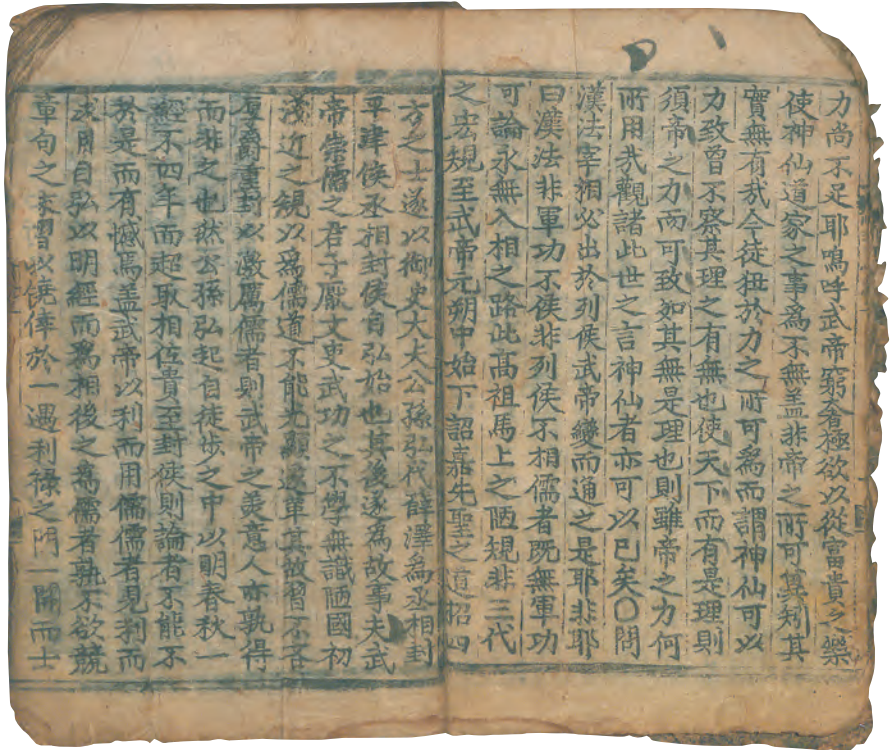 力尚不足耶嗚呼武帝窮奢極欲以從富貴之樂
使神仙道家之事爲不無盖非帝之所可冀知其
實無有㢤今徒狃於力之所可爲而謂神仙可以
力致曾不察其理之有無也使天下而有是理則
須帝之力而可致如其無是理也則雖帝之力何
所用㢤觀諸此世之言神仙者亦可以已矣〇問
漢法宰相必出於列侯武帝變而通之是耶非耶
曰漢法非軍功不侯非列侯不相儒者旣無軍功
可論永無入相之路此高祖馬上之陋規非三代
之宏規至武帝元朔中始下詔嘉先聖之道招四
方之士遂以御史大夫公孫弘代薛澤爲丞相封
平津侯丞相封侯自弘始也其後遂爲故事夫武
帝崇儒之君子厭文吏武功之不學無識陋國初
淺近之規以爲儒道不能尤顯遂革其故習不吝
厚爵重封以激厲儒者則武帝之美意人亦孰得
而非之也然公孫弘起自徒步之中以明春秋一
經不四年而超取相位貴至封侯則論者不能不
於是而有憾焉盖武帝以利而用儒儒者見利而
求用自弘以明經而爲相後之爲儒者孰不欲競
章句之末習以僥倖於一遇利祿之門一開而士